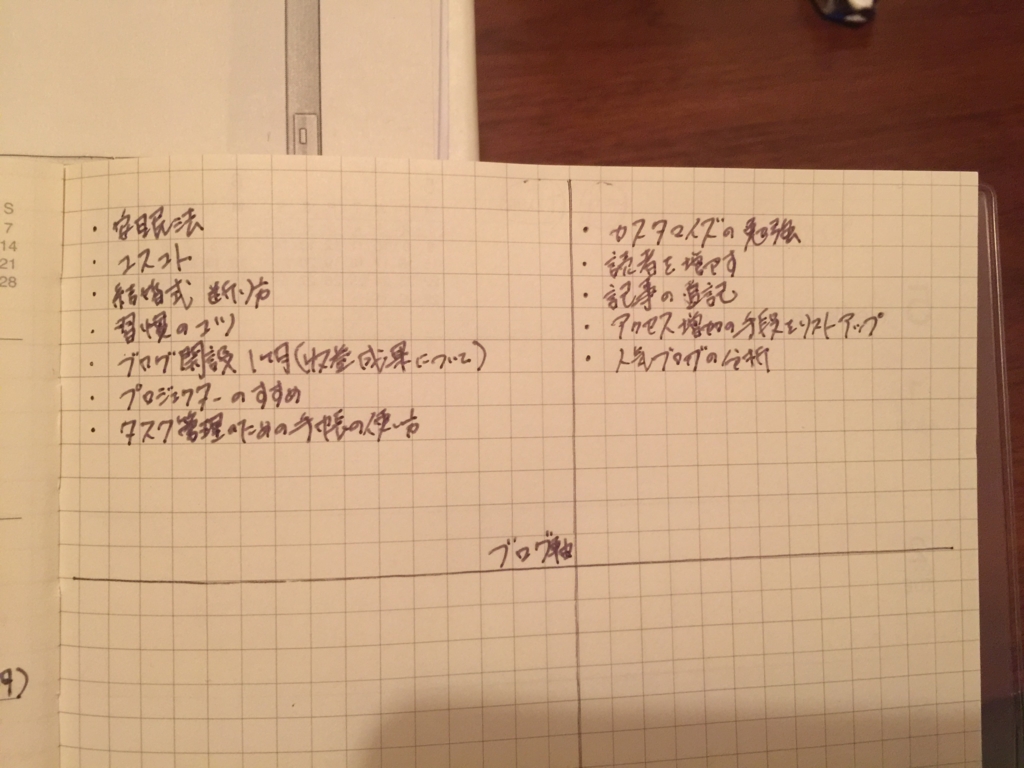 S
7
14
21
28
・安眠法
・コストコ
・結婚式 断り方
・習慣のコツ
・ブログ開設 1ヶ月(収益成果について)
・プロジェクターのすすめ
・タスク管理のための手帳の使い方
・カスタマイズの勉強
・読者を増やす
・記事の追記
・アクセス増加の手段をリストアップ
・人気ブログの分析
ブログ軸
9)